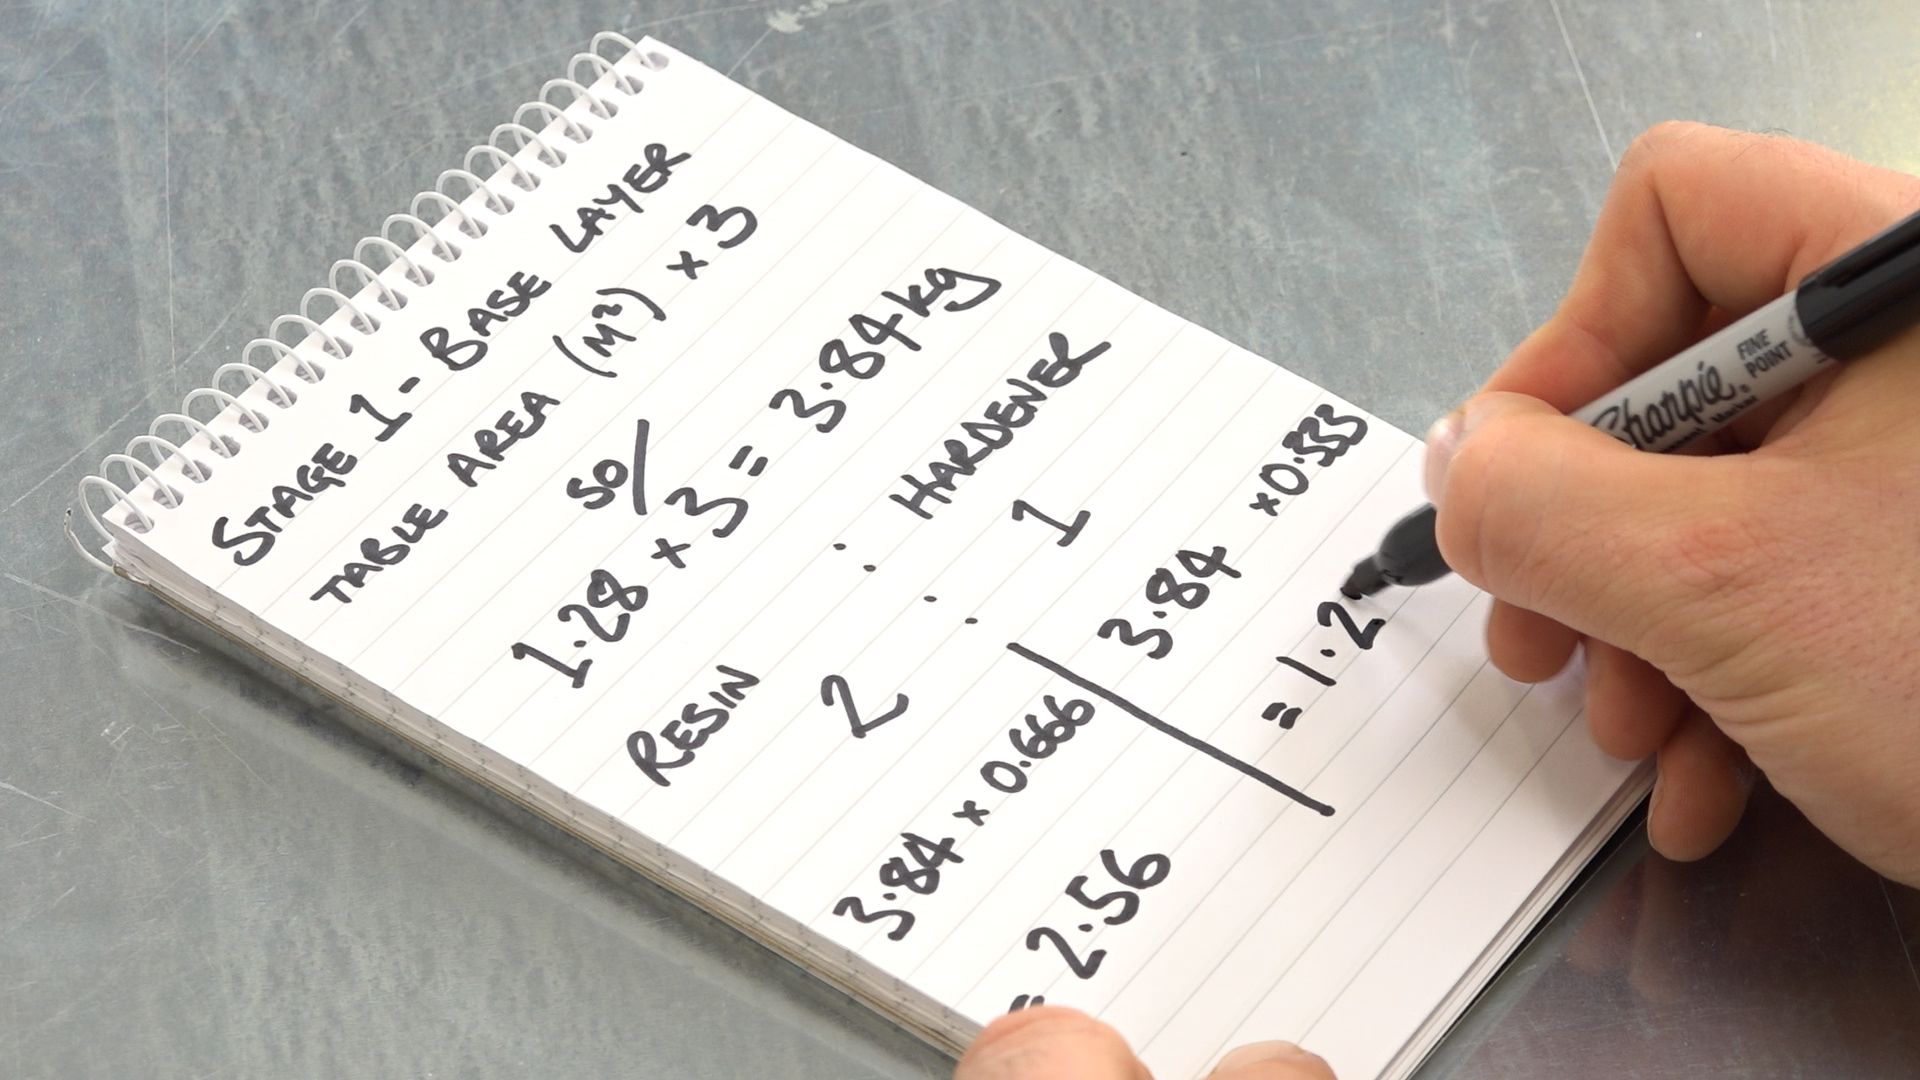 STAGE 1 - BASE LAYER
TABLE AREA (M²) × 3
SO/
1.28 × 3 = 3.84 kg
RESIN : HARDENER
2 : 1
3.84 × 0.666
= 2.56
3.84 × 0.333
= 1.2
Sharpie®
FINE POINT
Marker